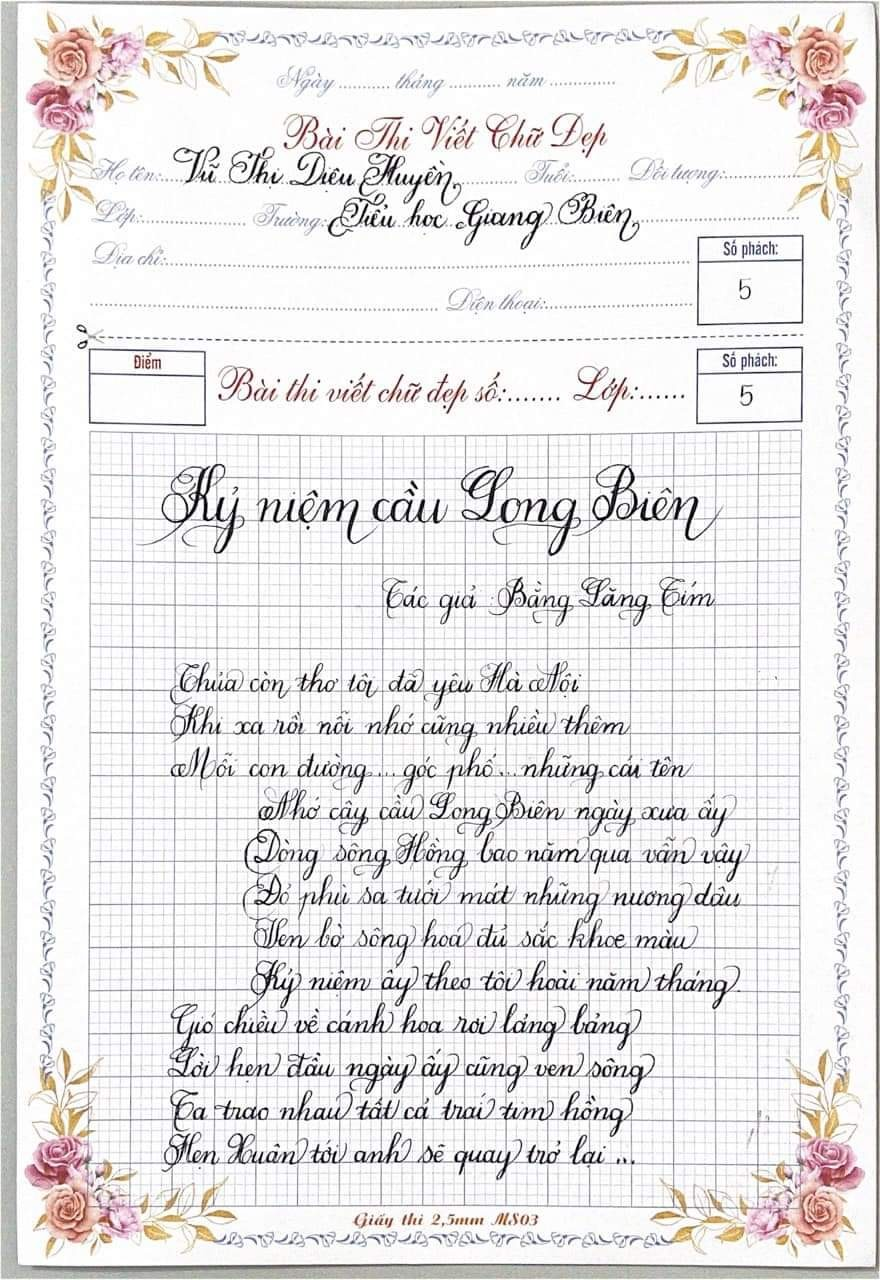 Ngày .......... tháng .......... năm .............
Bài Thi Viết Chữ Đẹp
Họ tên: Vũ Thị Diệu Huyền Tuổi:........ Đối tượng:............
Lớp:............ Trường: Tiểu học Giang Biên
Địa chỉ:
Số phách:
5
Điện thoại:
Điểm
Bài thi viết chữ đẹp số:....... Lớp:......
Số phách:
5
Kỷ niệm cầu Long Biên
Tác giả : Bằng Lăng Tím
Thủa còn thơ tôi đã yêu Hà Nội
Khi xa rồi nỗi nhớ cũng nhiều thêm
Mỗi con đường... góc phố... những cái tên
Nhớ cây cầu Long Biên ngày xưa ấy
Dòng sông Hồng bao năm qua vẫn vậy
Đỏ phù sa tưới mát những nương dâu
Ven bờ sông hoa đủ sắc khoe màu
Kỷ niệm ấy theo tôi hoài năm tháng
Gió chiều về cánh hoa rơi lảng bảng
Lời hẹn đầu ngày ấy cũng ven sông
Ta trao nhau tất cả trái tim hồng
Hẹn Xuân tới anh sẽ quay trở lại ...
Giấy thi 2,5mm MS03